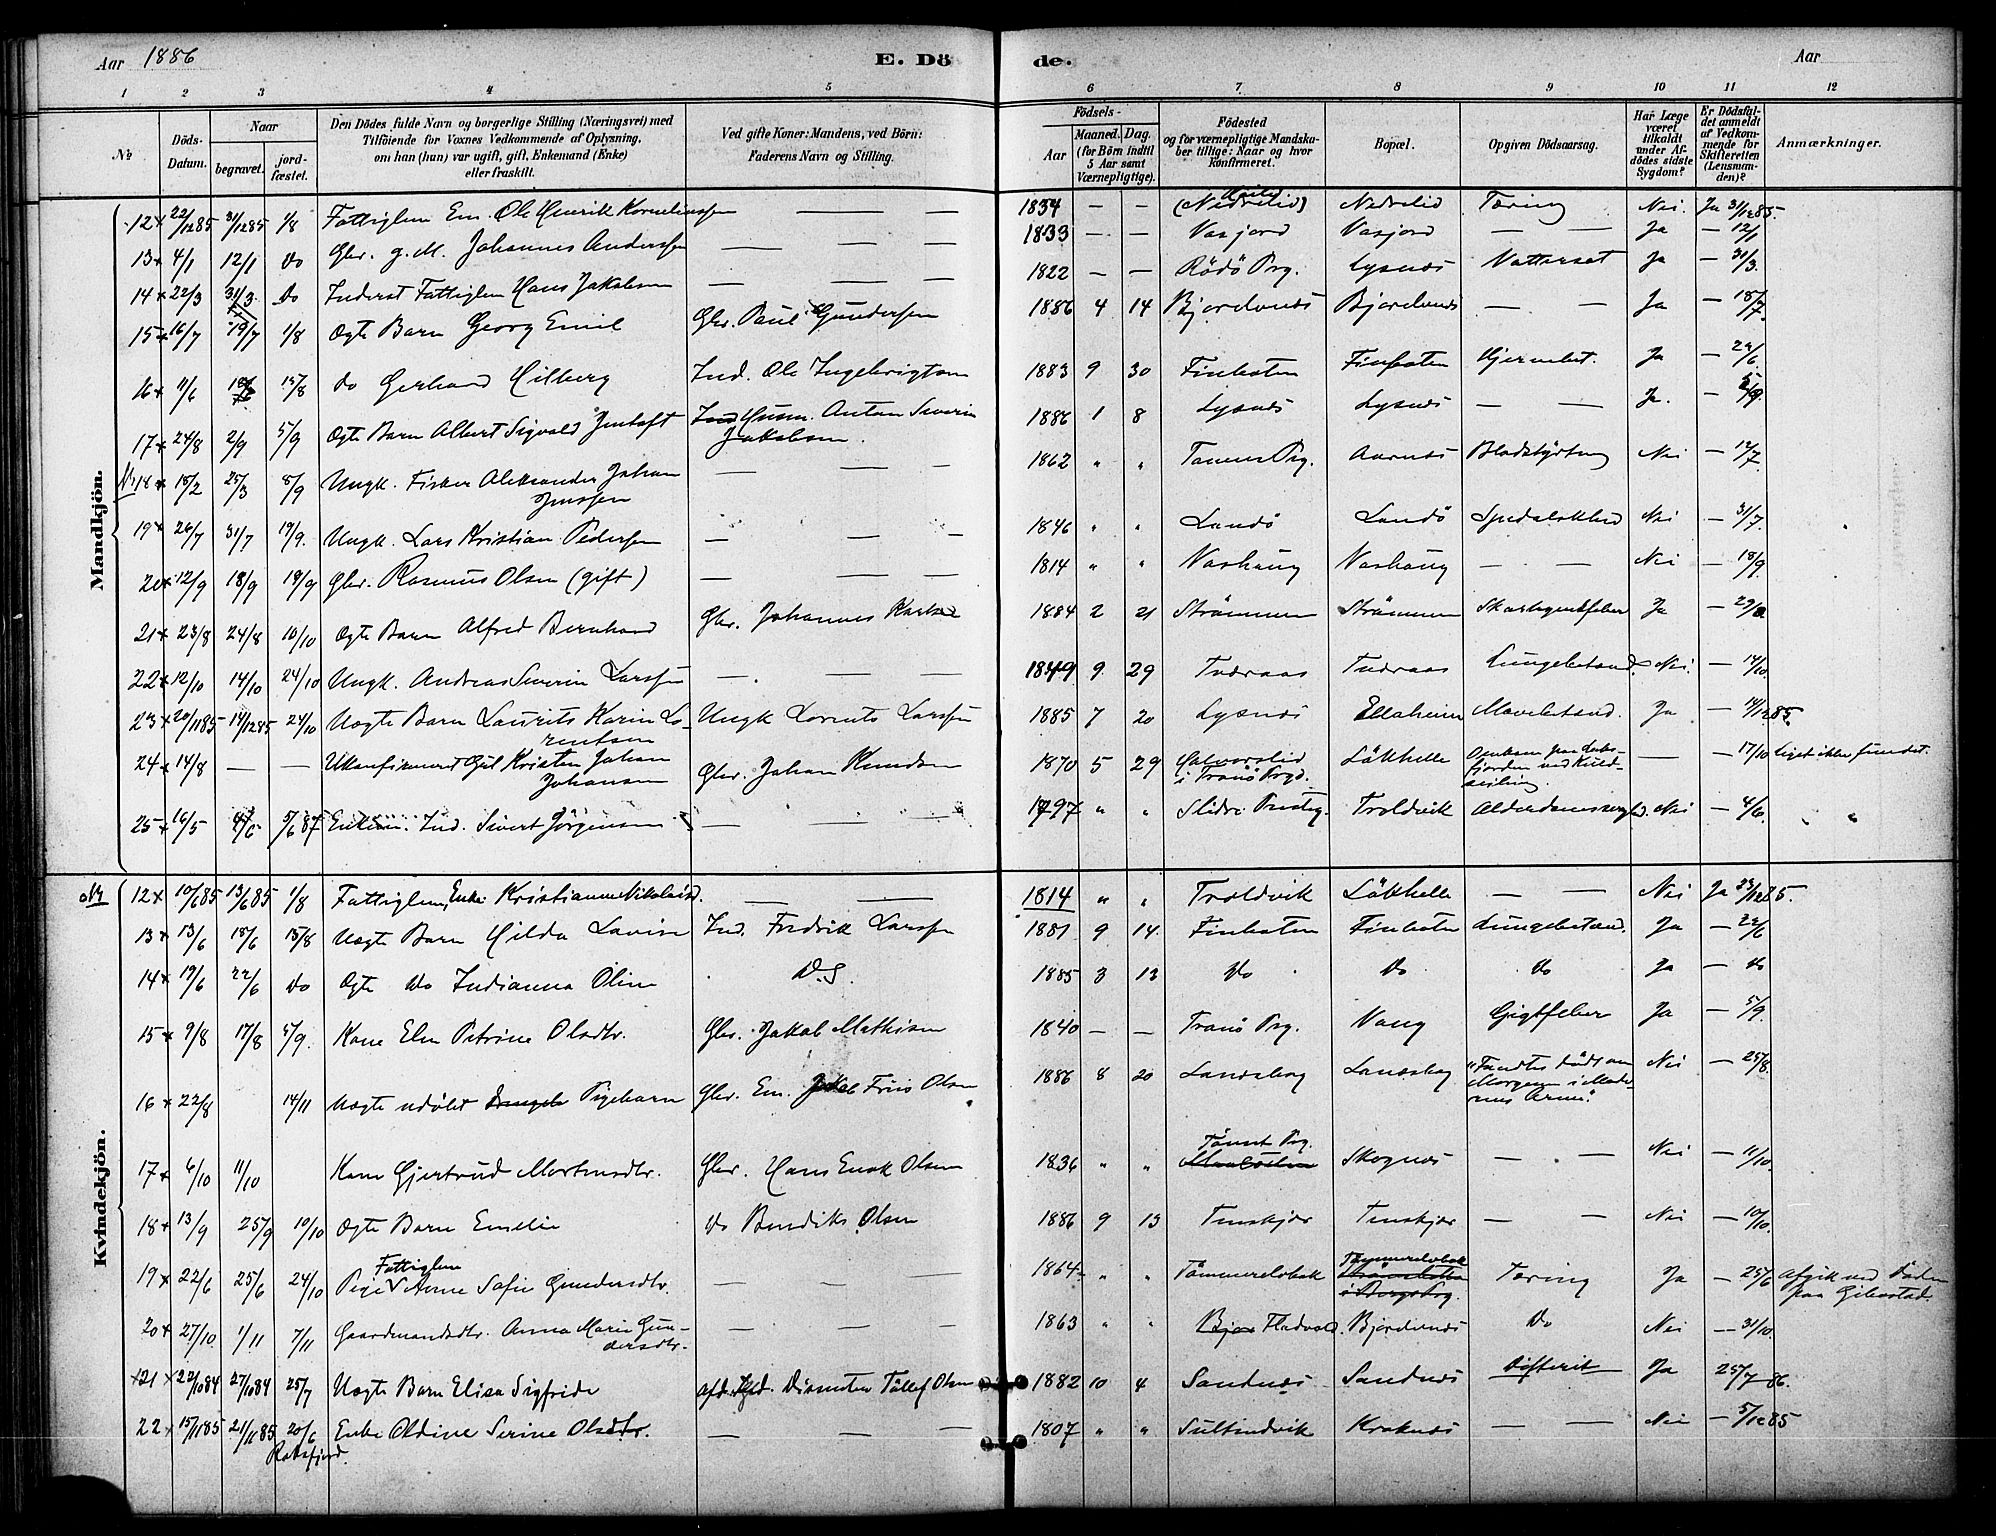 Aar 1886
E. Dö
de.
Aar
1 2 3 4 5 6 7 8 9 10 11 12
No
Döds-Datum.
Naar
begravet.
jord-fæstet.
Den Dödes fulde Navn og borgerlige Stilling (Næringsvei) med
Tilföiende for Voxnes Vedkommende af Oplysning,
om han (hun) var ugift, gift, Enkemand (Enke)
eller fraskilt.
Ved gifte Koner: Mandens, ved Börn:
Faderens Navn og Stilling.
Födsels-
Aar
Maaned. Dag.
(for Börn indtil
5 Aar samt
Værnepligtige).
Födested
og for værnepligtige Mandska-
ber tillige: Naar og hvor
konfirmeret.
Bopæl.
Opgiven Dödsaarsag.
Har Læge
været
tilkaldt
under Af-
dödes sidste
Sygdom?
Er Dödsfal-
det anmeldt
af Vedkom-
mende for
Skifteretten
(Lensman-
den)?
Anmærkninger.
Mandkjön.
12 22/12 85 31/12 85 1/8 Fattiglem Em. Ole Henrik Korneliussen — — — 1834 — — (Nedrelid) Nedrelid Tæring Nei. Ja 31/12 85
13 4/1 12/1 do Gbr. g. M. Johannes Anderssen — — — 1833 — — Vasjord Vasjord — — Ja — 12/1
14 22/3 31/3 Do Inderst Fattiglem Hans Jakobsen — — — 1822 — — Rödö Prg. Lysnes Vattersot Ja — 31/3
15 16/7 19/7 1/8 Ægte Barn Georg Emil Gbr. Paul Gundersen 1886 4 14 Bjorelvnes Bjorelvnes — — Ja — 18/7
16 11/6 15/8 do Gerhard Hilberg Ind. Ole Ingebrigtsen 1883 9 30 Finboten Finboten Hjernebet. Ja — 22/6
17 24/8 2/9 5/9 Ægte Barn Albert Sigvald Jentoft Husm. Anton Severin
Jakobsen. 1886 1 8 Lysnes Lysnes — — Ja.
18 18/2 25/3 5/9 Ungk. Fisker Aleksander Johan
Jenssen — — — 1862 " " Prg. Aarnes Blodstyrtning Nei — 12/7
19 26/7 31/7 19/9. Ungk. Lars Kristian Pedersen — — — 1846 " " Landö Landö Spedalskhed Nei — 31/7
20 12/9 18/9 19/9 Gbr. Rasmus Olsen (gift) — — — 1814 " " Vashaug Vashaug — — Nei — 18/9
21 23/8 24/8 10/10 Ægte Barn Alfred Bernhard Gbr. Johannes 1884 2 21 Strömmen Strömmen Skarlagensfeber Ja
22 12/10 14/10 24/10 Ungk. Andreas Severin Larssen — — — 1849 9 29 Tværaas Tværaas Lungebetænd. Nei — 14/10
23 20/11 85 14/12 85 24/10 Uægte Barn Laurits Karin Lo-
rentsen Ungk Lorents Larssen 1885 7 20 Lysnes Ellaheim Mavebetænd. Ja — 14/12 85.
24 14/8 — — Ukonfirmeret Gut Kristen Johan
Johansen Gbr. Johan Knudsen 1870 5 29
i Tranö Prgd. Lökhelle Omkom paa
fjorden ved Kuld-
seiling. — — 17/10 Liget ikke fundet.
25 16/5 5/6 87 Enkem. Ind. Sivert Jörgensen — — — 1797 " " Slidre Præstg. Troldvik Alderdomssvaghed. Nei — 4/6
Kvindekjön.
12 10/6 85 13/6 85 1/8 Fattiglem, Enke Kristianne Nikolaisd. — — 1814 " " Troldvik Lökhelle — — Nei Ja
13 13/6 18/6 15/8 Uægte Barn Hilda Lovise Ind. Fredrik Larssen 1881 9 14 Finboten Finboten Lungebetænd. Ja — 22/6
14 19/6 22/6 do Ægte do Indianna Oline D.S. 1885 3 13 Do Do Do Ja — do
15 9/8 17/8 5/9. Kone Elen Petrine Olsdtr. Gbr. Jakob Mathisen 1840 — — Tranö Prg. Vang Gigtfeber Ja — 5/9.
16 22/8 14/11 Uægte udöbt Pigebarn Gbr. Em. Friis Olsen 1886 8 20 Landsborg Landsborg "Fandtes död om
Morgenen i Mode-
rens Arme." Nei — 25/8.
17 6/10 11/10 Kone Gjertrud Mortensdtr. Gbr. Hans Enok Olsen 1836 " " Prg. Skognes — — Nei — 11/10.
18 13/9 25/9 10/10 Ægte Barn Emelie do Bendiks Olsen 1886 9 13 Tenskjær Tenskjær — — Nei — 10/10
19 22/6 25/6 24/10 Pige Fattiglem Anne Sofie Gundersdtr. — — — 1864 " " Tömmerelvbak Tömmerelvbak Tæring Ja — 25/6 Afgik ved Döden
paa Gibostad.
20 27/10 1/11 7/11 Gaardmandsdtr. Anna Marie Gun-
dersdtr. — — — 1863 " " Bjorelvnes Do Nei — 31/10.
21 22/10 84 27/10 84 25/7 Uægte Barn Elisa Sigfride Tollef Olsen 1882 10 4 Sandnes Sandnes Difterit Ja 25/7 86.
22 15/11 85 21/11 85 20/6 Enke Oldine Serine Olsdtr. — — — 1807 " " Sultindvik Kraknes — — Nei — 5/12 85